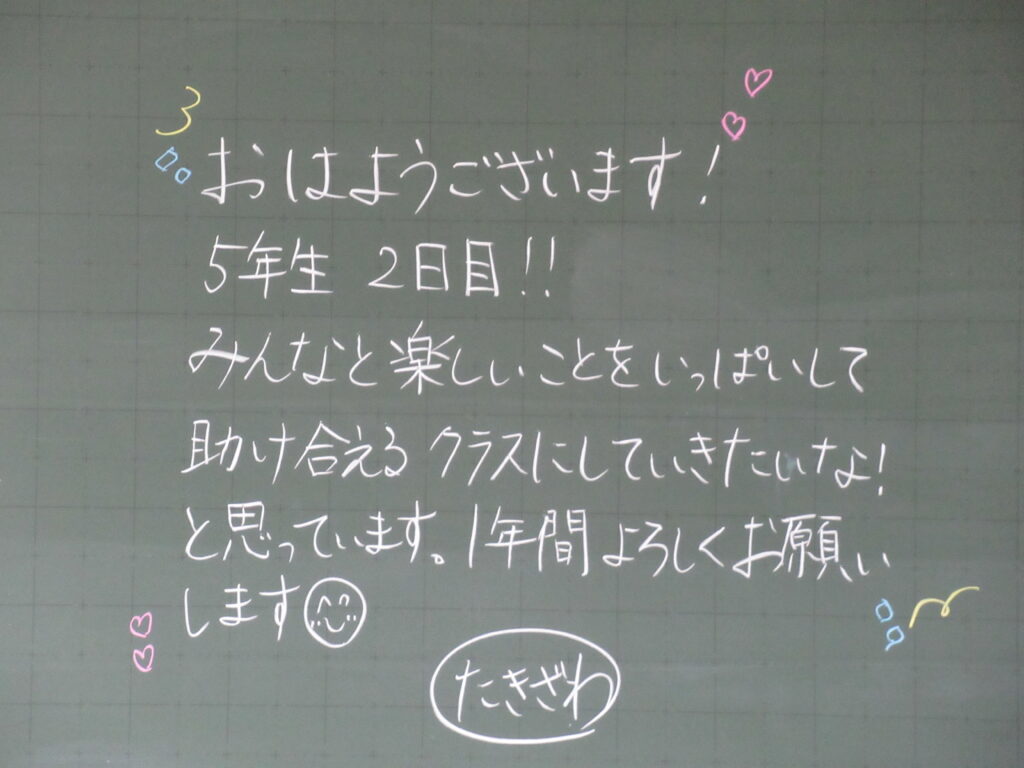 おはようございます!
5年生 2日目!!
みんなと楽しいことをいっぱいして
助け合えるクラスにしていきたいなぁ!
と思っています。1年間よろしくお願い
します
たきざわ